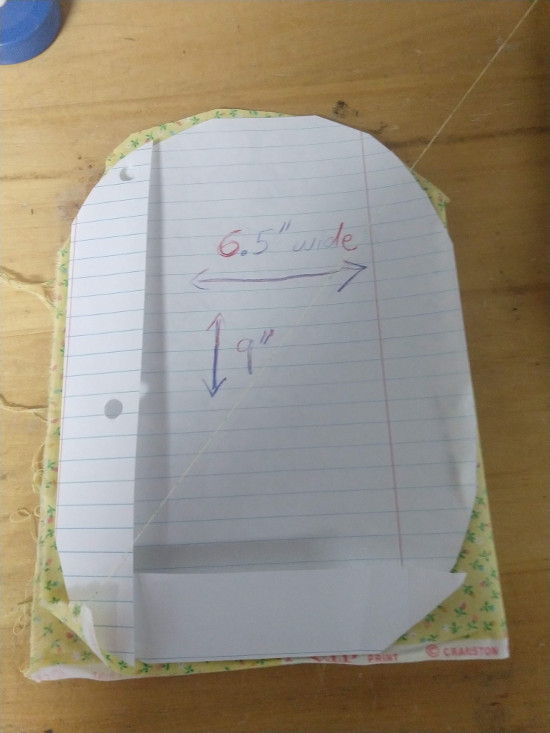 6.5" wide
9"
PRINT © CRANSTON